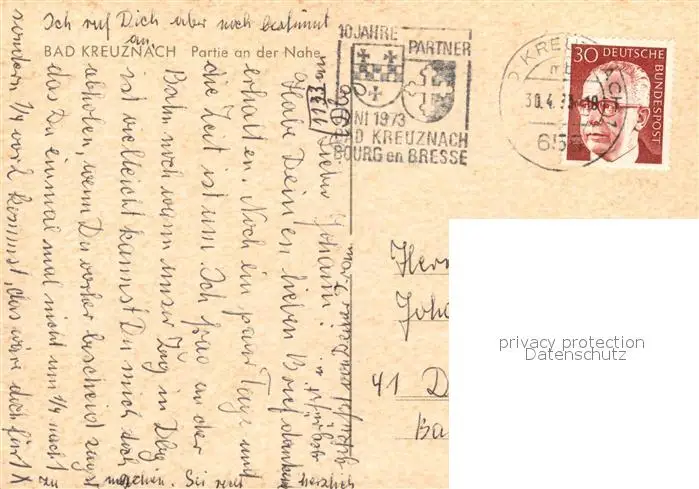 BAD KREUZNACH Partie an der Nahe
10 JAHRE PARTNER
JUNI 1973
BAD KREUZNACH
BOURG en BRESSE
30.4.73-18
655
30 DEUTSCHE BUNDESPOST
Lieber Johann!
Habe Deinen lieben Brief dankend
erhalten. Noch ein paar Tage und
die Zeit ist um. Ich frag an der
Bahn noch wann unser Zug in Dbg
ist vielleicht kannst Du mich doch
abholen, wenn Du vorher bescheid sagst
das Du einmal mal nicht um 1/4 nacht
sondern 1/4 vor kommst, das wäre doch fürs
zu machen. Sei recht herzlich
gegrüßt von Deiner
Ich ruf Dich aber noch bestimmt
an
Herr
Joha
41 D
Ba
privacy protection
Datenschutz